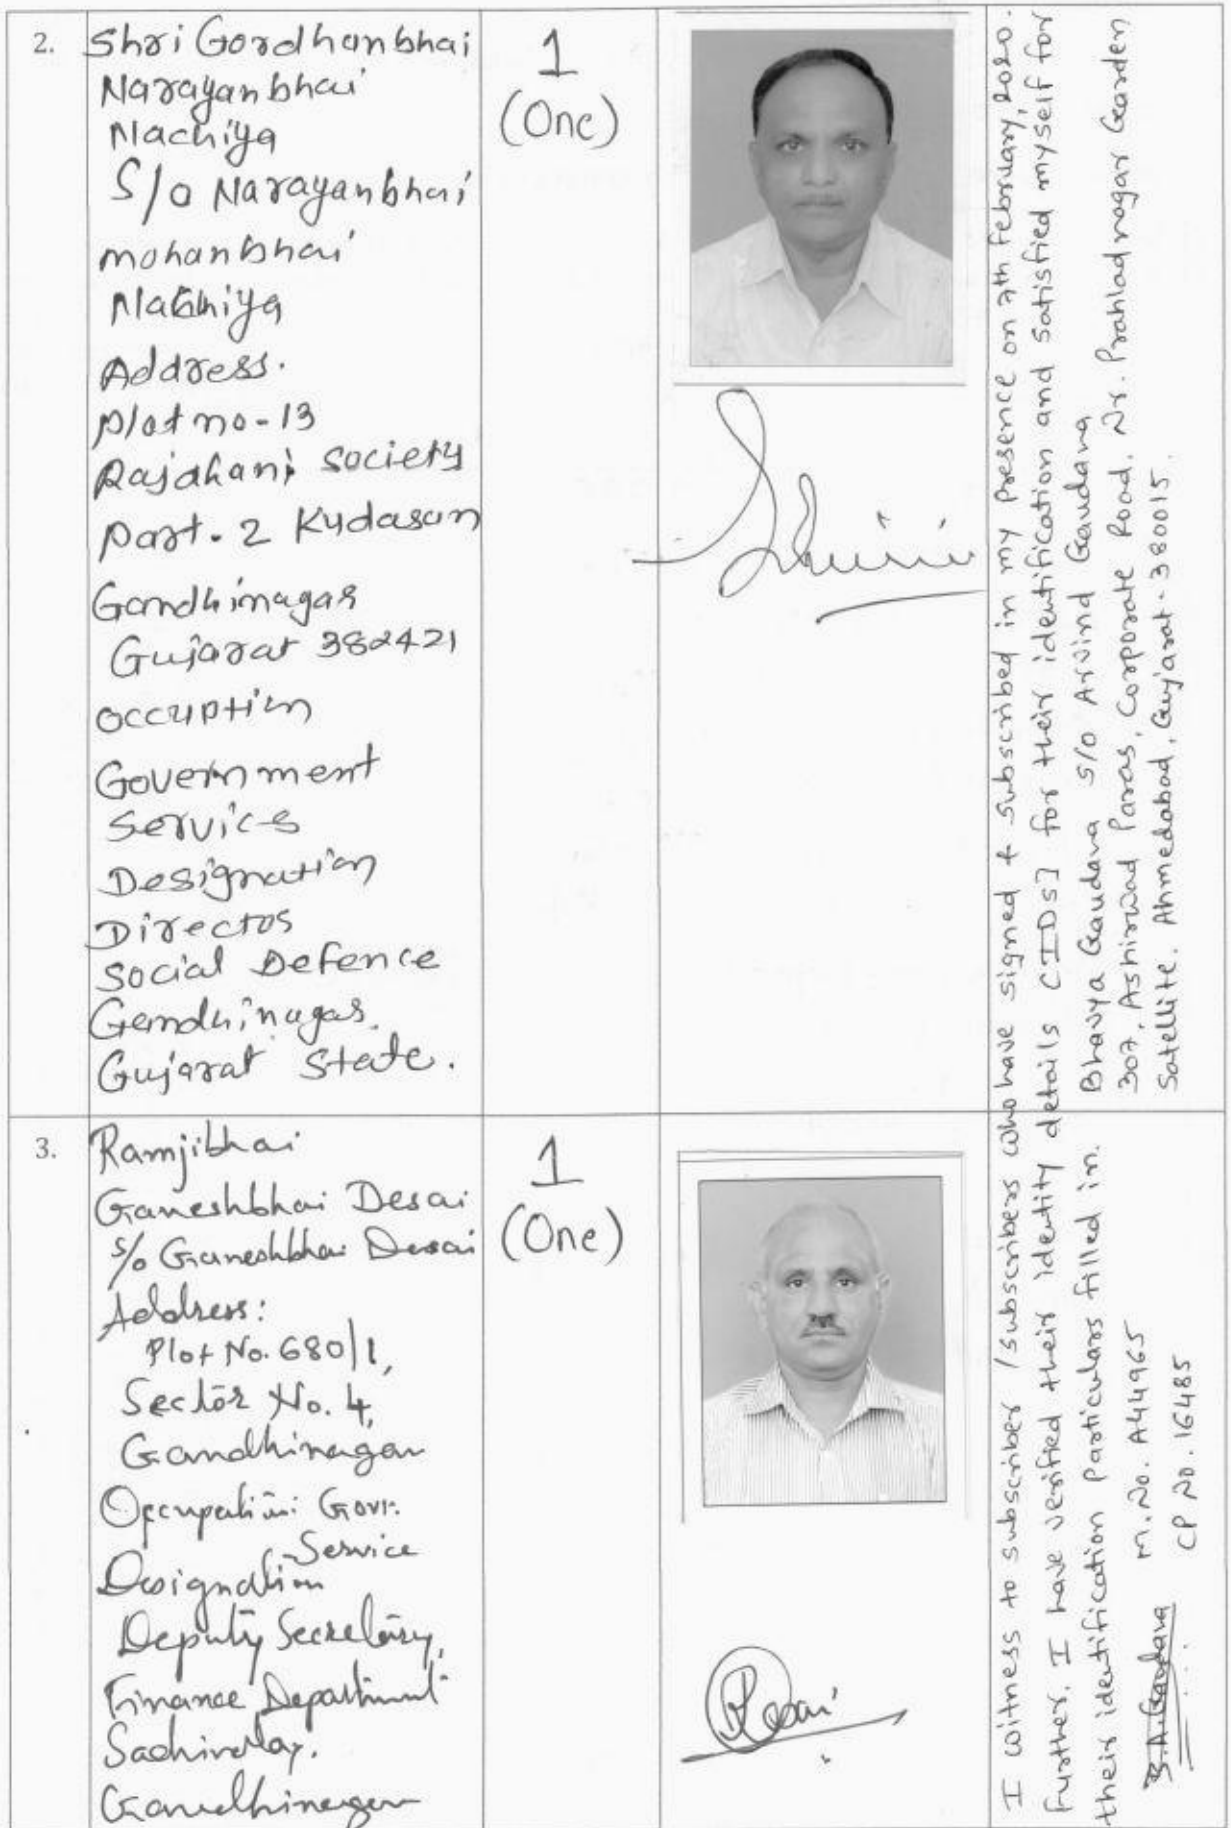 2.
Shri Gordhanbhai
Narayanbhai
Machiya
S/o Narayanbhai
mohanbhai
Machiya
Address.
plot no-13
Rajdhani society
Part-2 Kudasan
Gandhinagar
Gujarat 382421
occuption
Government
Services
Designation
Director
Social Defence
Gandhinagar.
Gujarat State.
1
(One)
3.
Ramjibhai
Ganeshbhai Desai
S/o Ganeshbhai Desai
Address:
Plot No. 680/1,
Sector No. 4,
Gandhinagar
Occupation: Govt.
Service
Designation
Deputy Secretary,
Finance Department
Sachivalay.
Gandhinagar
1
(One)
Desai
I witness to subscriber /subscribers who have signed + subscribed in my presence on 7th February, 2020.
Further. I have verified their identity details CIDs] for their identification and satisfied myself for
their identification particulars filled in.
Bhavya Gaudana S/O Arvind Gaudana
307, Ashirwad Paras, Corporate Road. Nr. Prahladnagar Gearden
Satellite. Ahmedabad, Gujarat-380015.
M.No. A44965
CP No. 16485
B.A.Gaudana